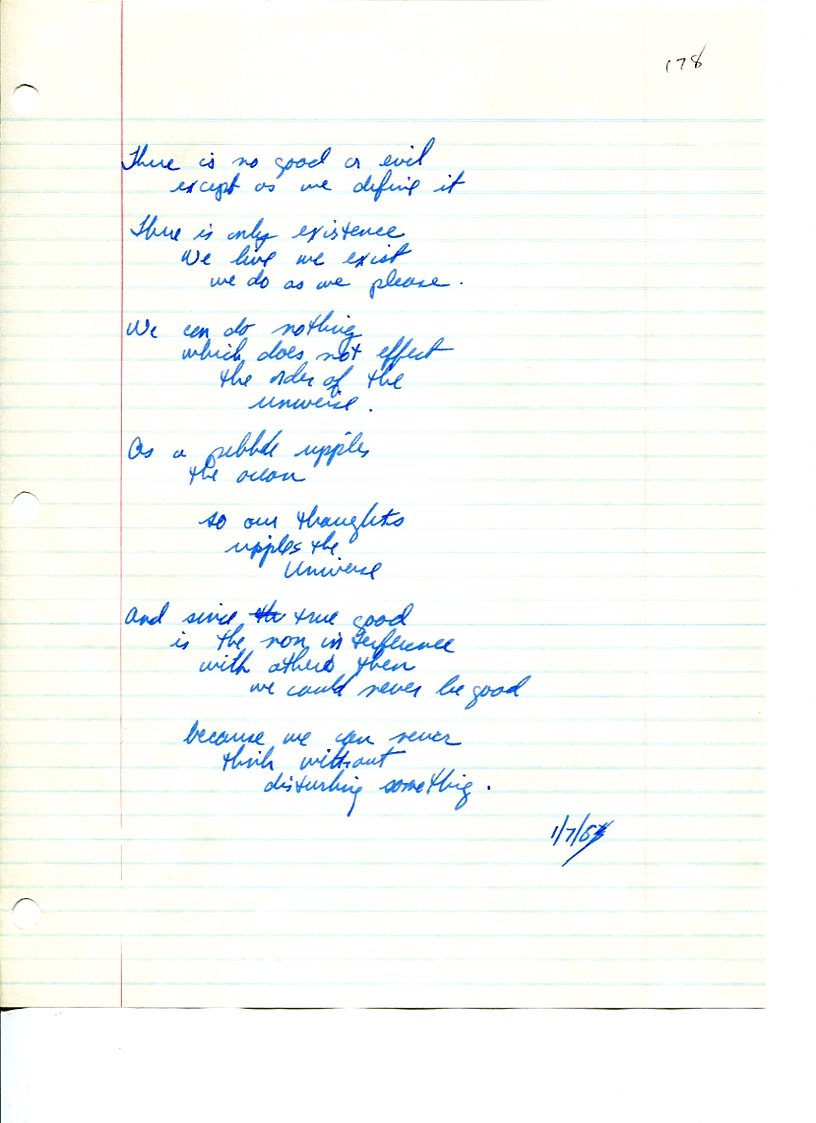 178
There is no good or evil
except as we define it
There is only existence
We live we exist
we do as we please.
We can do nothing
which does not effect
the order of the
universe.
As a pebble ripples
the ocean
so our thoughts
ripples the
Universe
And since the true good
is the non interference
with others then
we could never be good
because we can never
think without
disturbing something.
1/7/6